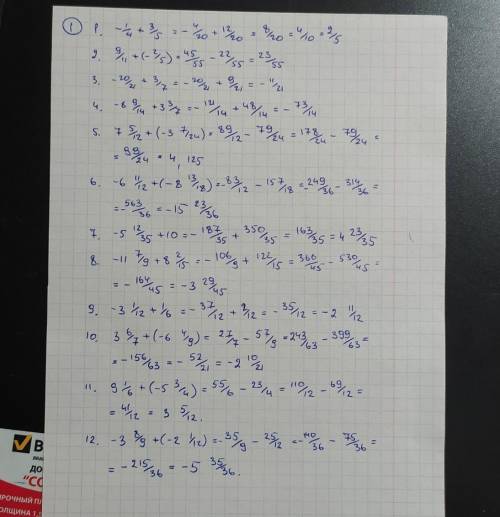 1
1. -1/4 + 3/5 = -4/20 + 12/20 = 8/20 = 4/10 = 2/5
2. 9/11 + (-2/5) = 45/55 - 22/55 = 23/55
3. -20/21 + 3/7 = -20/21 + 9/21 = -11/21
4. -8 9/14 + 3 3/7 = -121/14 + 48/14 = -73/14
5. 7 5/12 + (-3 7/24) = 89/12 - 79/24 = 178/24 - 79/24 =
= 99/24 = 4,125
6. -6 11/12 + (-8 13/18) = -83/12 - 157/18 = -249/36 - 314/36 =
= -563/36 = -15 23/36
7. -5 12/35 + 10 = -187/35 + 350/35 = 163/35 = 4 23/35
8. -11 7/9 + 8 2/15 = -106/9 + 122/15 = 366/45 - 530/45 =
= -164/45 = -3 29/45
9. -3 1/12 + 1/6 = -37/12 + 2/12 = -35/12 = -2 11/12
10. 3 6/7 + (-6 4/9) = 27/7 - 57/9 = 243/63 - 399/63 =
= -156/63 = -52/21 = -2 10/21
11. 9 1/6 + (-5 3/4) = 55/6 - 23/4 = 110/12 - 69/12 =
= 41/12 = 3 5/12.
12. -3 8/9 + (-2 1/12) = -35/9 - 25/12 = -140/36 - 75/36 =
= -215/36 = -5 35/36.
В
ДО
"СО
ОЧНЫЙ ПЛ
ОЛЩИНА 1,